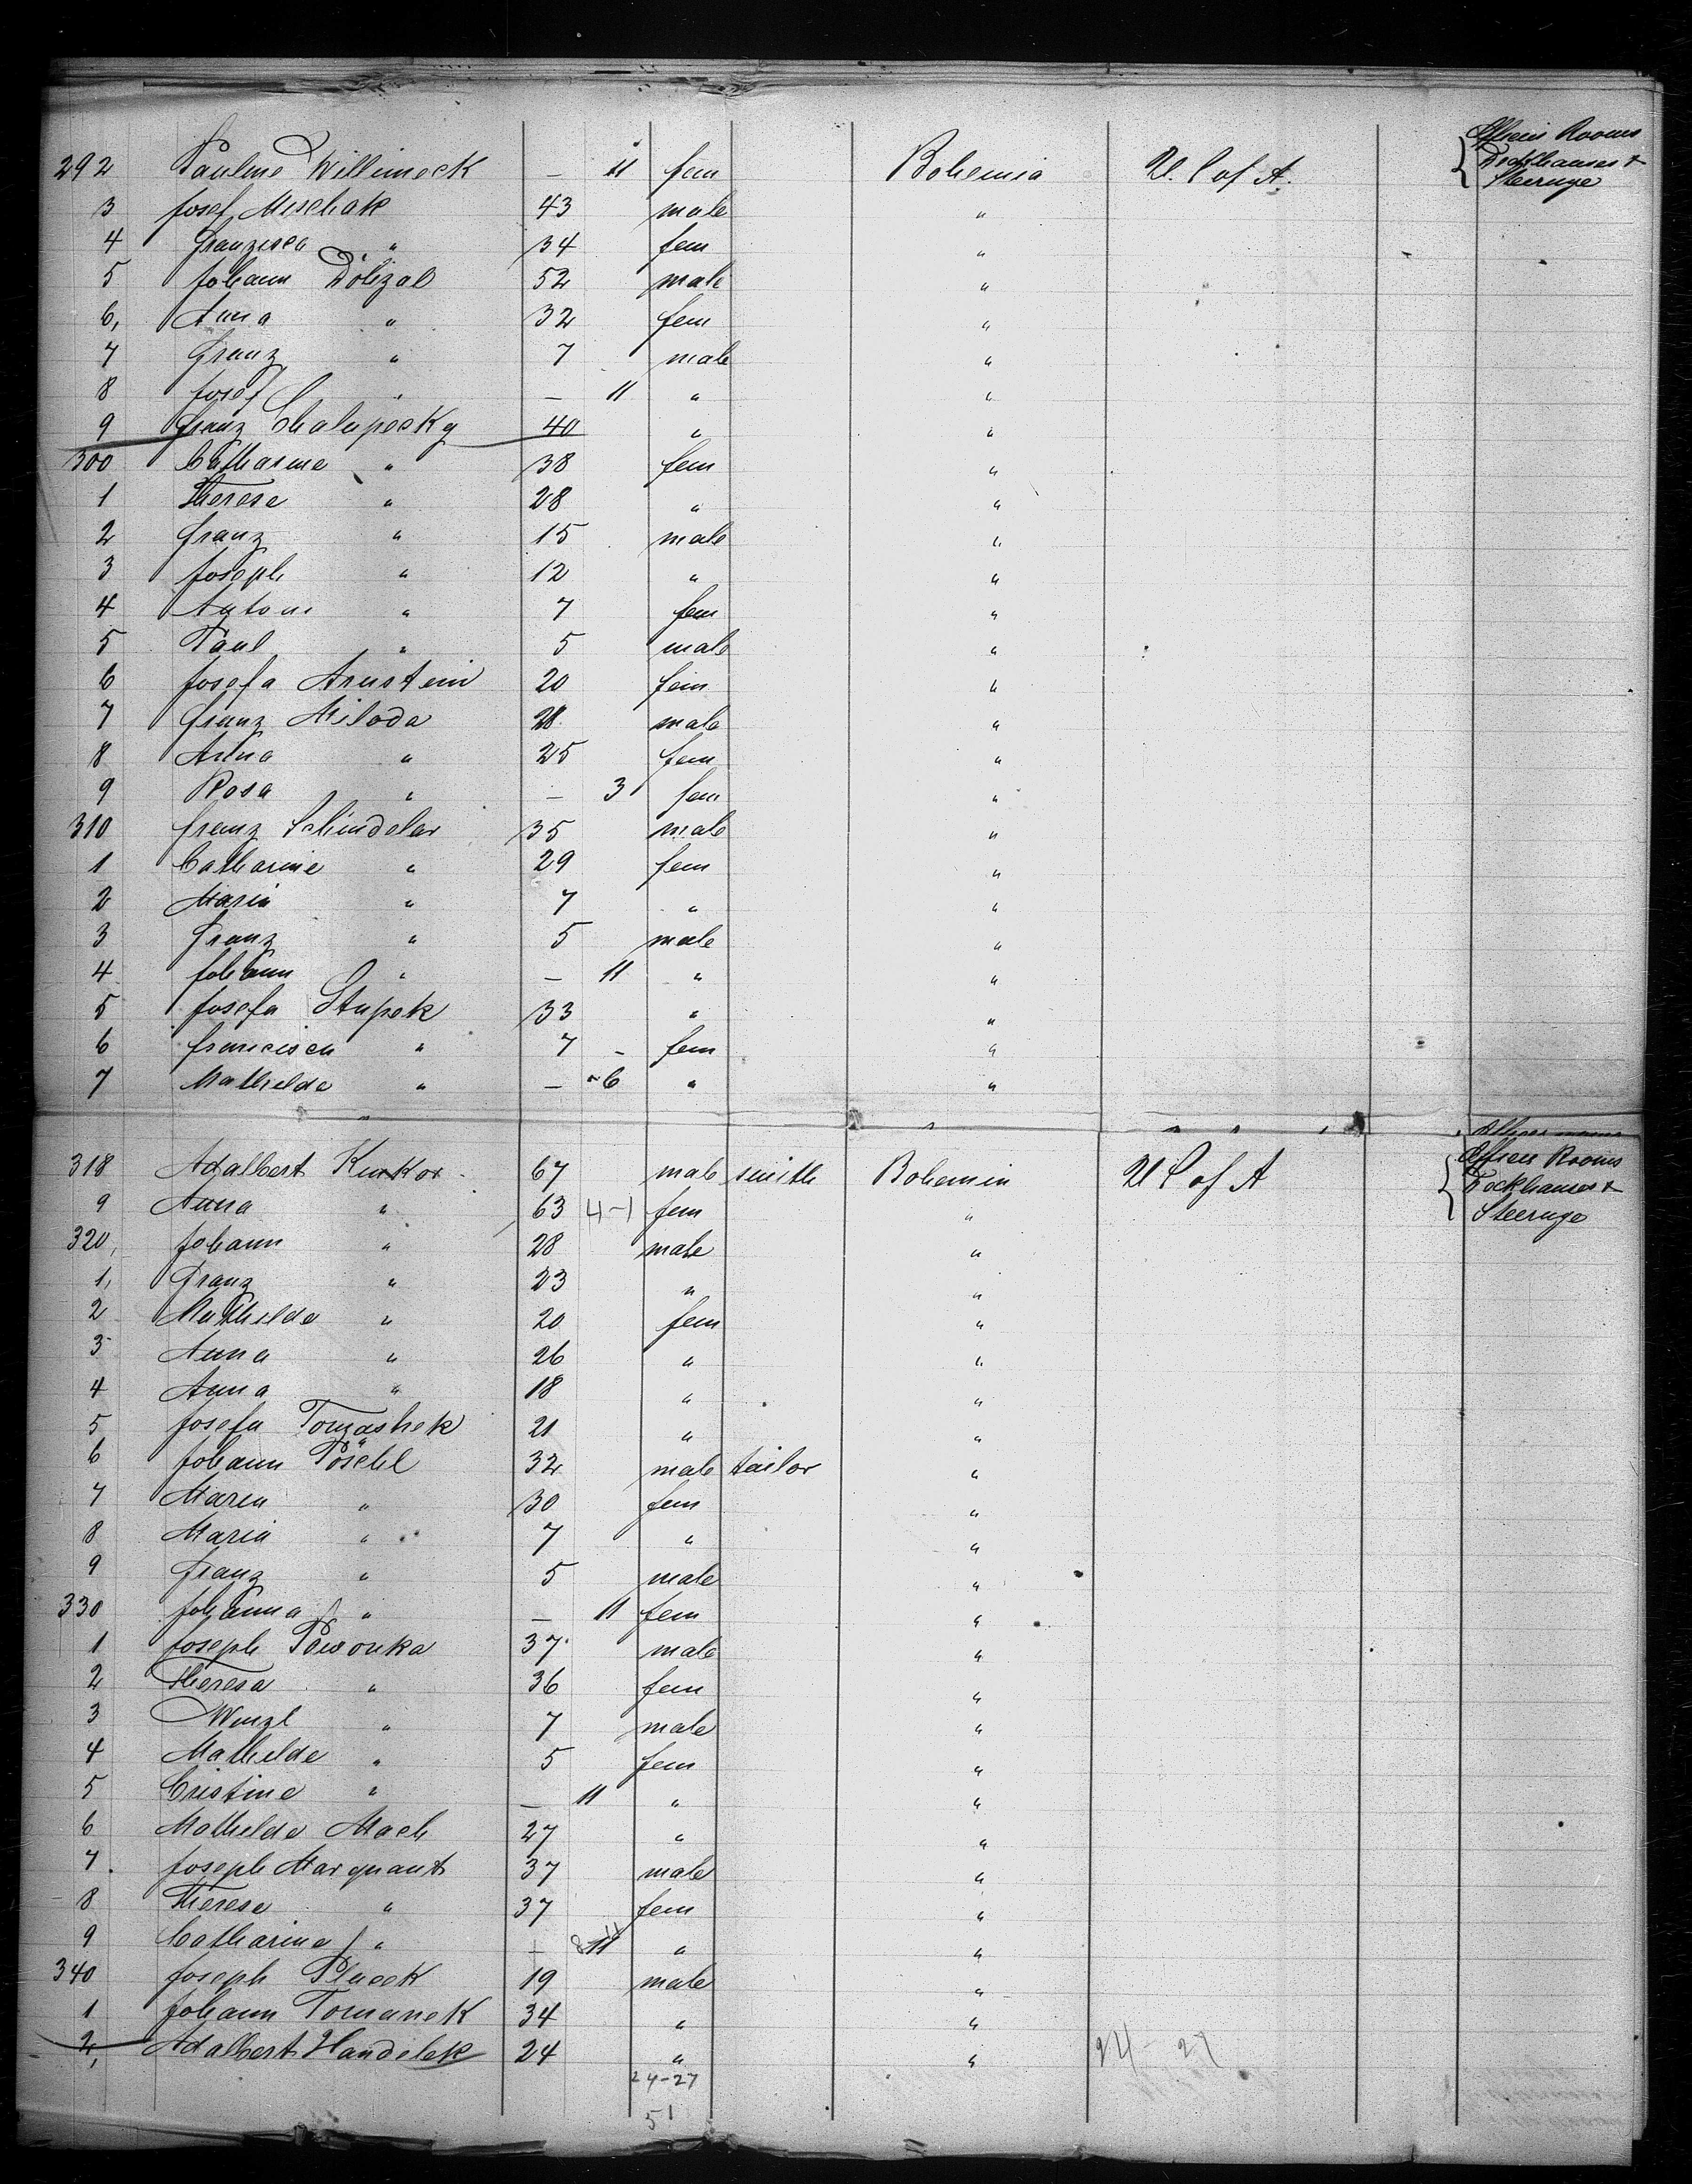 Officers Rooms
292 Pauline Willimeck — 11 fem Bohemia U. S of A. { Deckhauses &
Steerage
3 Josef Meschak 43 male "
4 Franzisca " 34 fem "
5 Johann Dolezal 52 male "
6, Anna " 32 fem "
7 Franz " 7 male "
8 Josef " — 11 " "
9 Franz Chalupecky 40 " "
300 Catharine " 38 fem "
1 Therese " 28 " "
2 Franz " 15 male "
3 Joseph " 12 " "
4 Anton " 7 fem "
5 Paul " 5 male "
6 Josefa Arnstein 20 fem "
7 Franz Miloda 28 male "
8 Anna " 25 fem "
9 Rosa " — 3 fem "
310 Franz Schindelar 35 male "
1 Catharine " 29 fem "
2 Maria " 7 " "
3 Franz " 5 male "
4 Johann " — 11 " "
5 Josefa Stupek 33 " "
6 Francisca " 7 - fem "
7 Mathilde " — 6 " "
Officers Rooms
318 Adalbert Kunkor 67 male smith Bohemia U S of A { Deckhauses &
Steerage
9 Anna " 63 4-1 fem "
320, Johann " 28 male "
1, Franz " 23 " "
2 Mathilde " 20 fem "
3 Anna " 26 " "
4 Anna " 18 " "
5 Josefa Tomashek 21 " "
6 Johann Pöschl 32 male tailor "
7 Maria " 30 fem "
8 Maria " 7 " "
9 Franz " 5 male "
330 Johanna " — 11 fem "
1 Joseph Pewonka 37 male "
2 Theresa " 36 fem "
3 Wenzl " 7 male "
4 Mathilde " 5 fem "
5 Cristine " — 11 " "
6 Mathilde Mach 27 " "
7. Joseph Marquant 37 male "
8 Therese " 37 fem "
9 Catharine " — 11 " "
340 Joseph Plucek 19 male "
1 Johann Tomanek 34 " "
2, Adalbert Handelek 24 " " 24-27
24-27
51